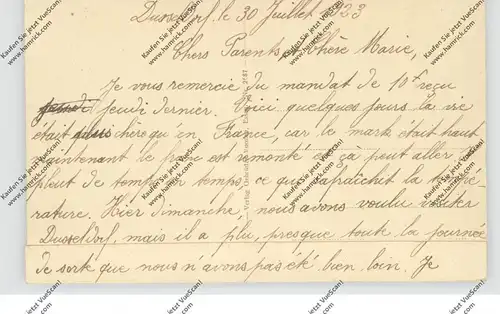 Dusseldorf, le 30 Juillet 1923
Chers Parents, Chère Marie,
Je vous remercie du mandat de 10f reçu
jeudi jeudi dernier. Voici quelques jours la vie
était plus chère qu'en France, car le mark était haut
maintenant le franc est remonté et çà peut aller. Il
pleut de temps en temps, ce que rafraîchit la tempé-
rature. Hier dimanche, nous avons voulu visiter
Dusseldorf, mais il a plu, presque toute la journée
de sorte que nous n'avons pas été bien loin. Je
Kaufen Sie jetzt VueScan!
www.hamrick.com